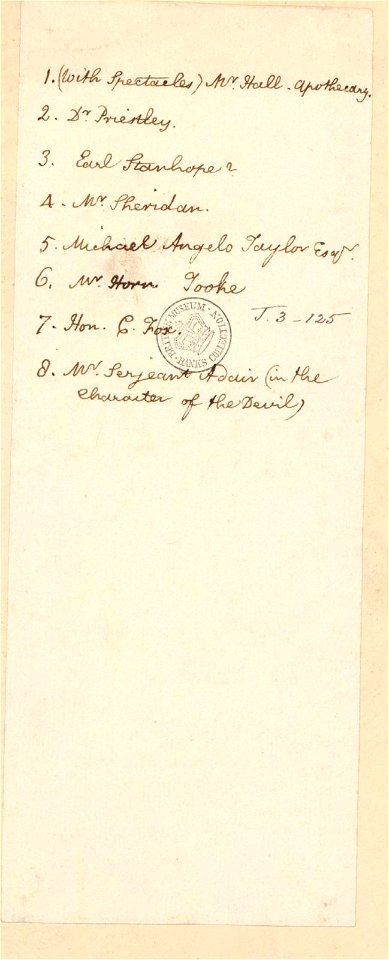 1. (With Spectacles) Mr. Hall - Apothecary.
2. Dr Priestley.
3. Earl Stanhope?
4. Mr. Sheridan.
5. Michael Angelo Taylor Esqr.
6. Mr. Horn Tooke
7. Hon. C. Fox.
BRITISH MUSEUM - BANKS COLLECTION
J. 3 - 125
8. Mr. Serjeant Adair (in the
Character of the Devil)